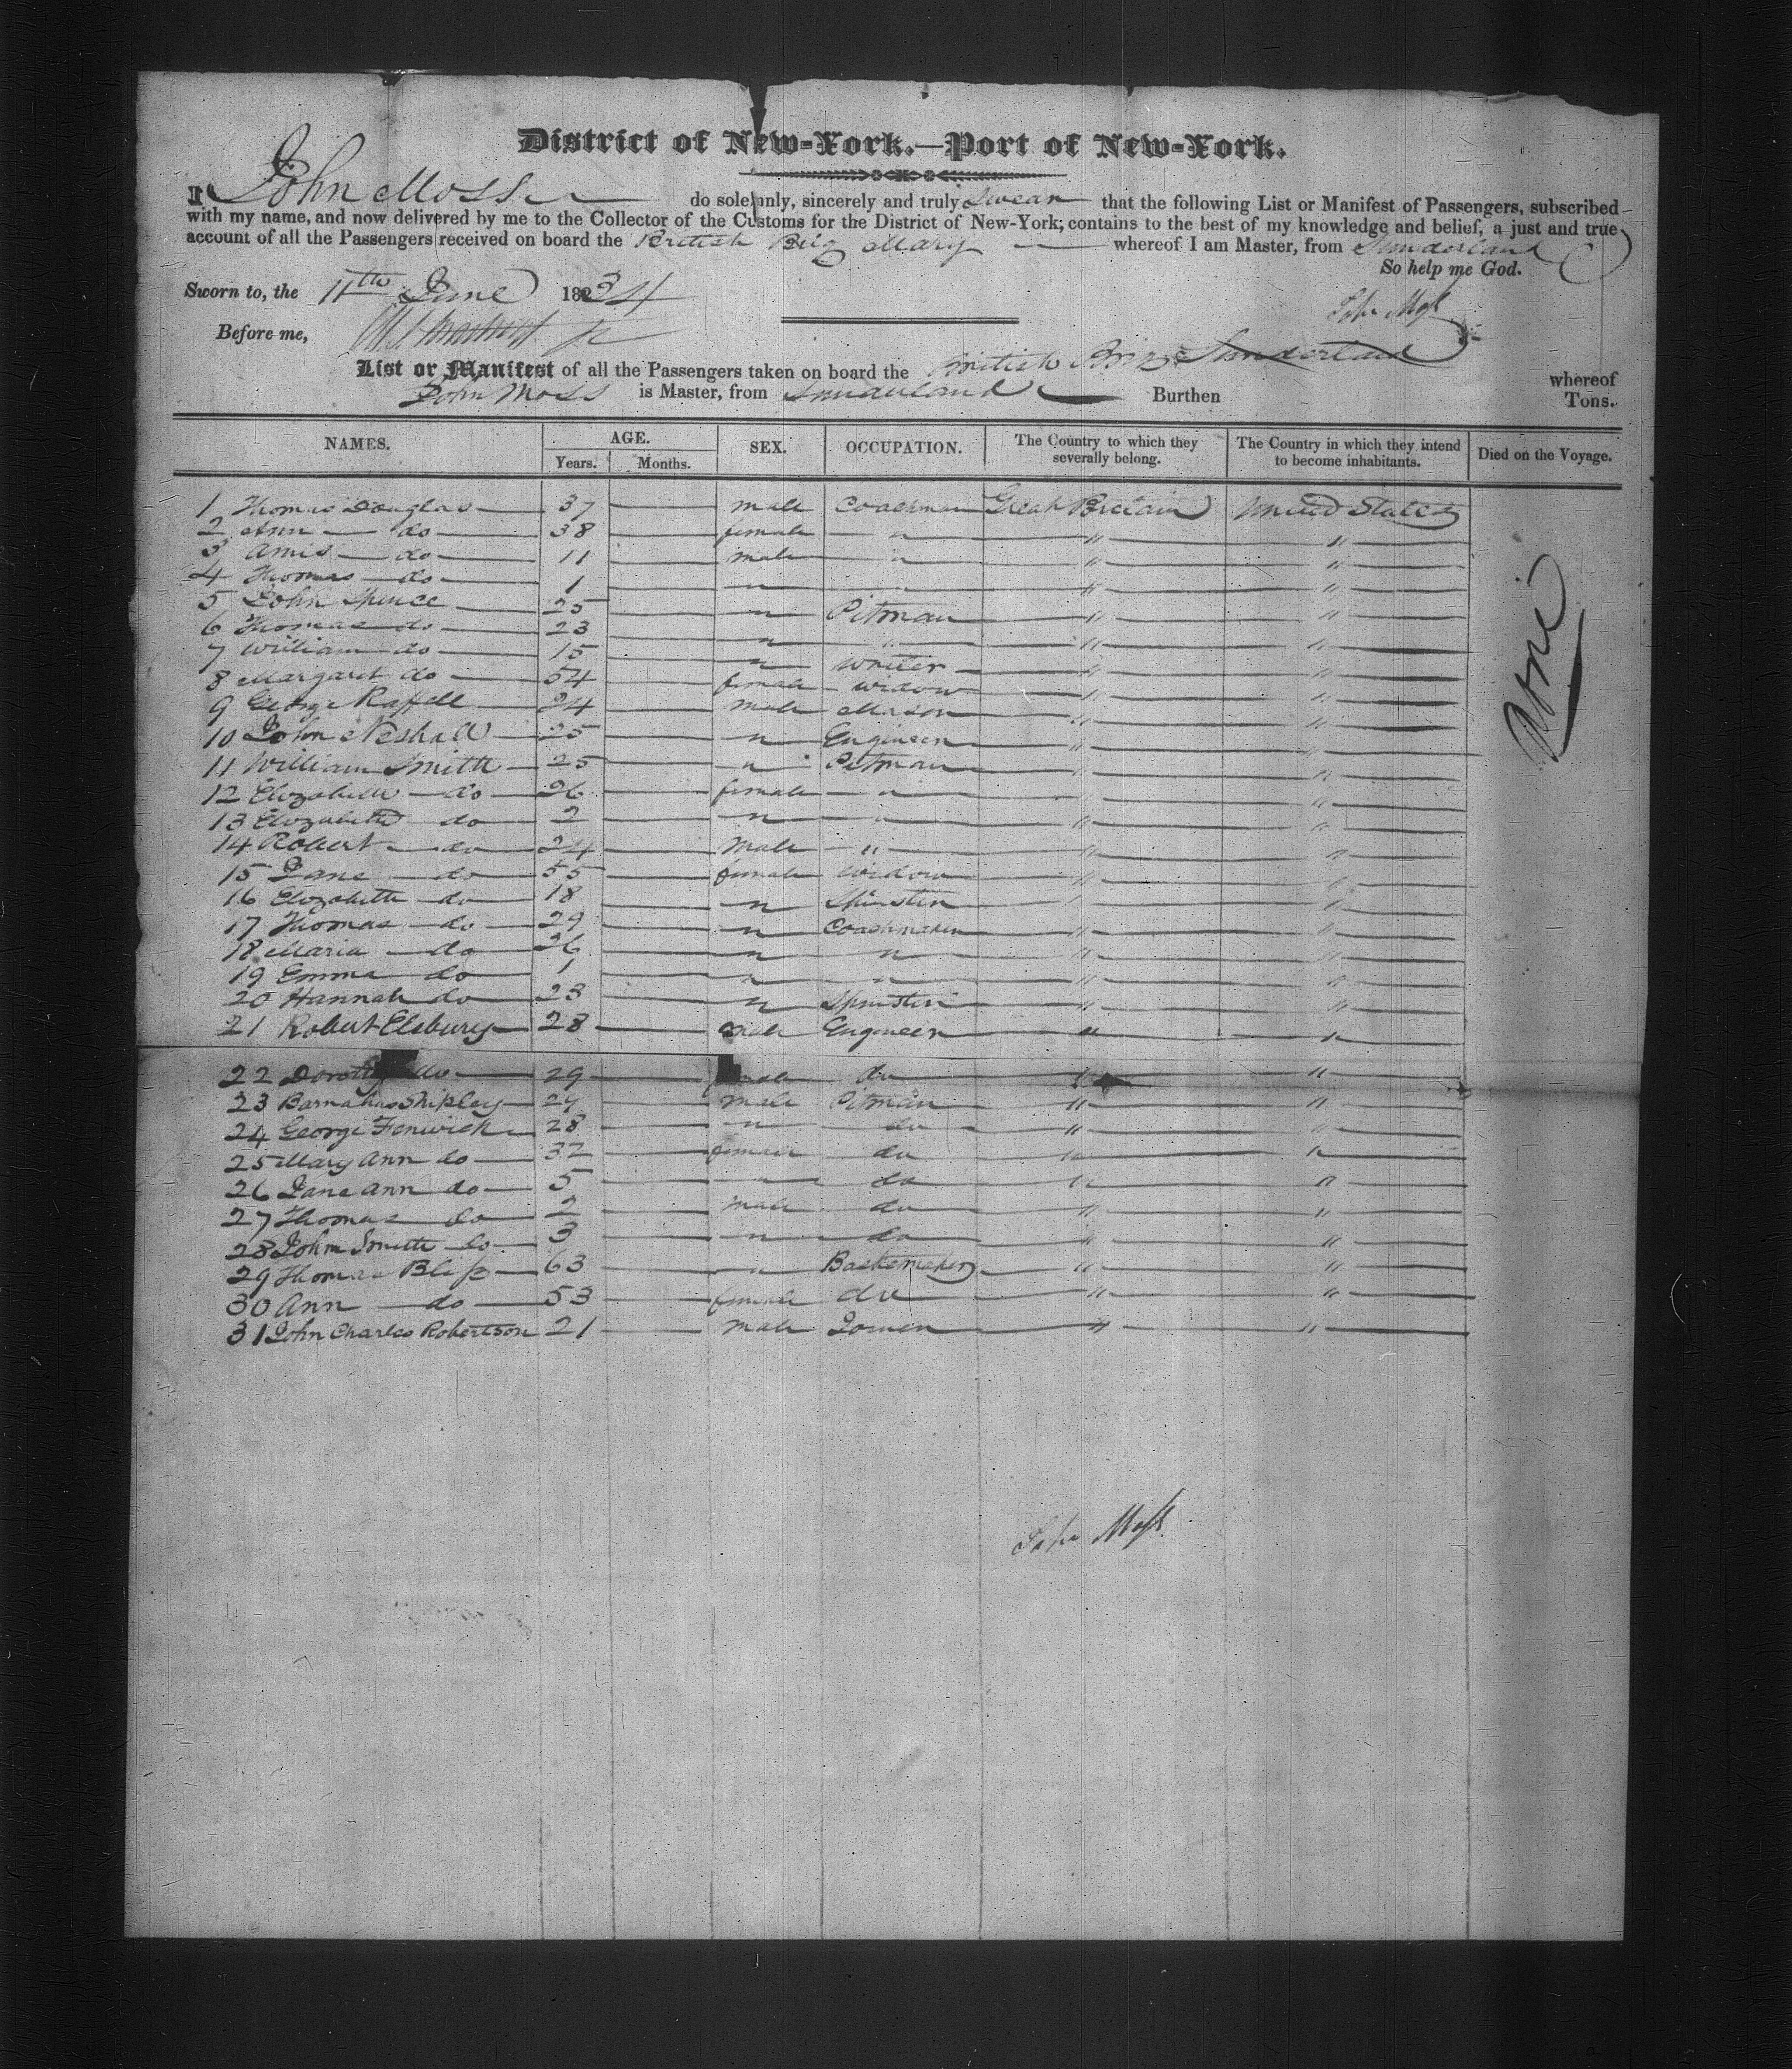 District of New-York.—Port of New-York.
I John Moss do solemnly, sincerely and truly Swear that the following List or Manifest of Passengers, subscribed
with my name, and now delivered by me to the Collector of the Customs for the District of New-York; contains to the best of my knowledge and belief, a just and true
account of all the Passengers received on board the British Brig Mary whereof I am Master, from Sunderland
So help me God.
Sworn to, the 11th June 1834
John Moss
Before me,
List or Manifest of all the Passengers taken on board the British Brig Sunderland whereof
John Moss is Master, from Sunderland Burthen Tons.
NAMES. AGE. SEX. OCCUPATION. The Country to which they severally belong. The Country in which they intend to become inhabitants. Died on the Voyage.
Years. Months.
1 Thomas Douglas 37 male Coachman Great Britain United States
2 Ann do 38 female " " "
3 Amis do 11 male " " "
4 Thomas do 1 " " " "
5 John Spence 25 " Pitman " "
6 Thomas do 23 " " " "
7 William do 15 " Writer " "
8 Margaret do 54 female widow " "
9 George Raffell 24 male Mason " "
10 John Neshall 25 " Engineer " "
11 William Smith 25 " Pitman " "
12 Elizabeth do 26 female " " "
13 Elizabeth do 2 " " " "
14 Robert do 24 Male " " "
15 Jane do 55 female Widow " "
16 Elizabeth do 18 " Spinster " "
17 Thomas do 29 " Coachmaker " "
18 Maria do 26 " " " "
19 Emma do 1 " " " "
20 Hannah do 23 " Spinster " "
21 Robert Elsbury 28 male Engineer " "
22 do 29 do " "
23 Barnabas Shipley 27 male Pitman " "
24 George Fenwick 28 " do " "
25 Mary Ann do 32 female do " "
26 Jane Ann do 5 " do " "
27 Thomas do 2 male do " "
28 John Smith do 3 " do " "
29 Thomas Bliss 63 " Basketmaker " "
30 Ann do 53 female do " "
31 John Charles Robertson 21 male " "
None
John Moss